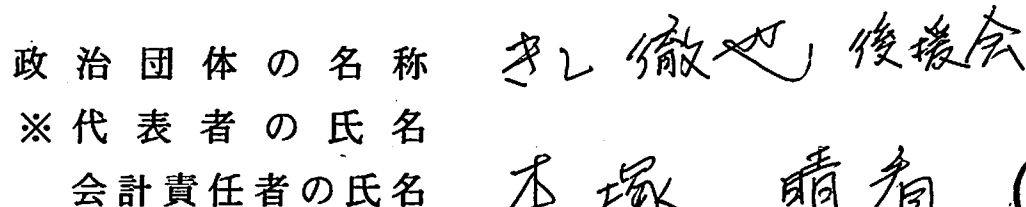 政治団体の名称 きし徹也後援会
※代表者の氏名
会計責任者の氏名 木塚 晴香